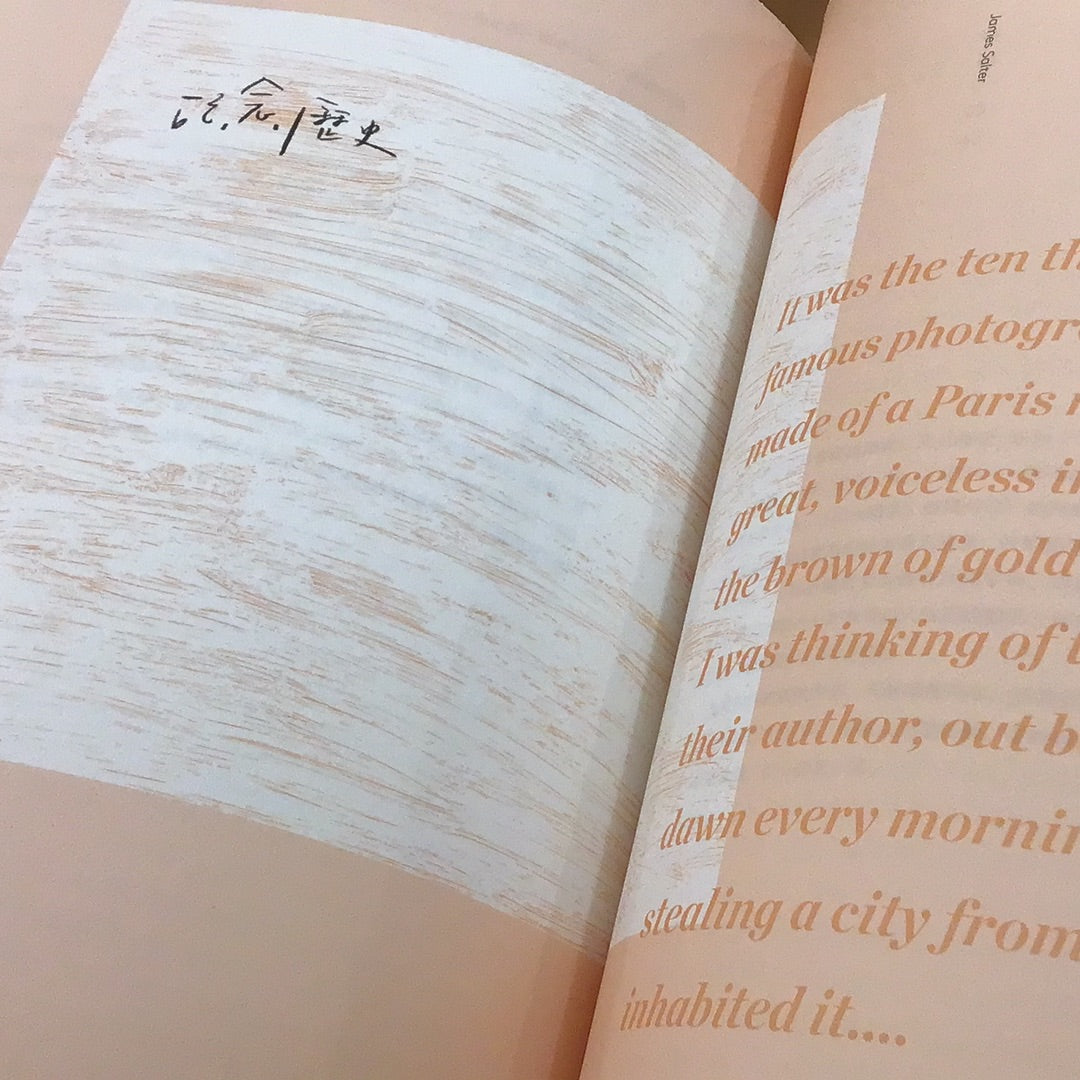 念 歷史
James Salter
It was the ten
famous
made of a Paris
great, voiceless
the brown of gold
I was thinking of
their author, out
dawn every
stealing a city from
inhabited it....